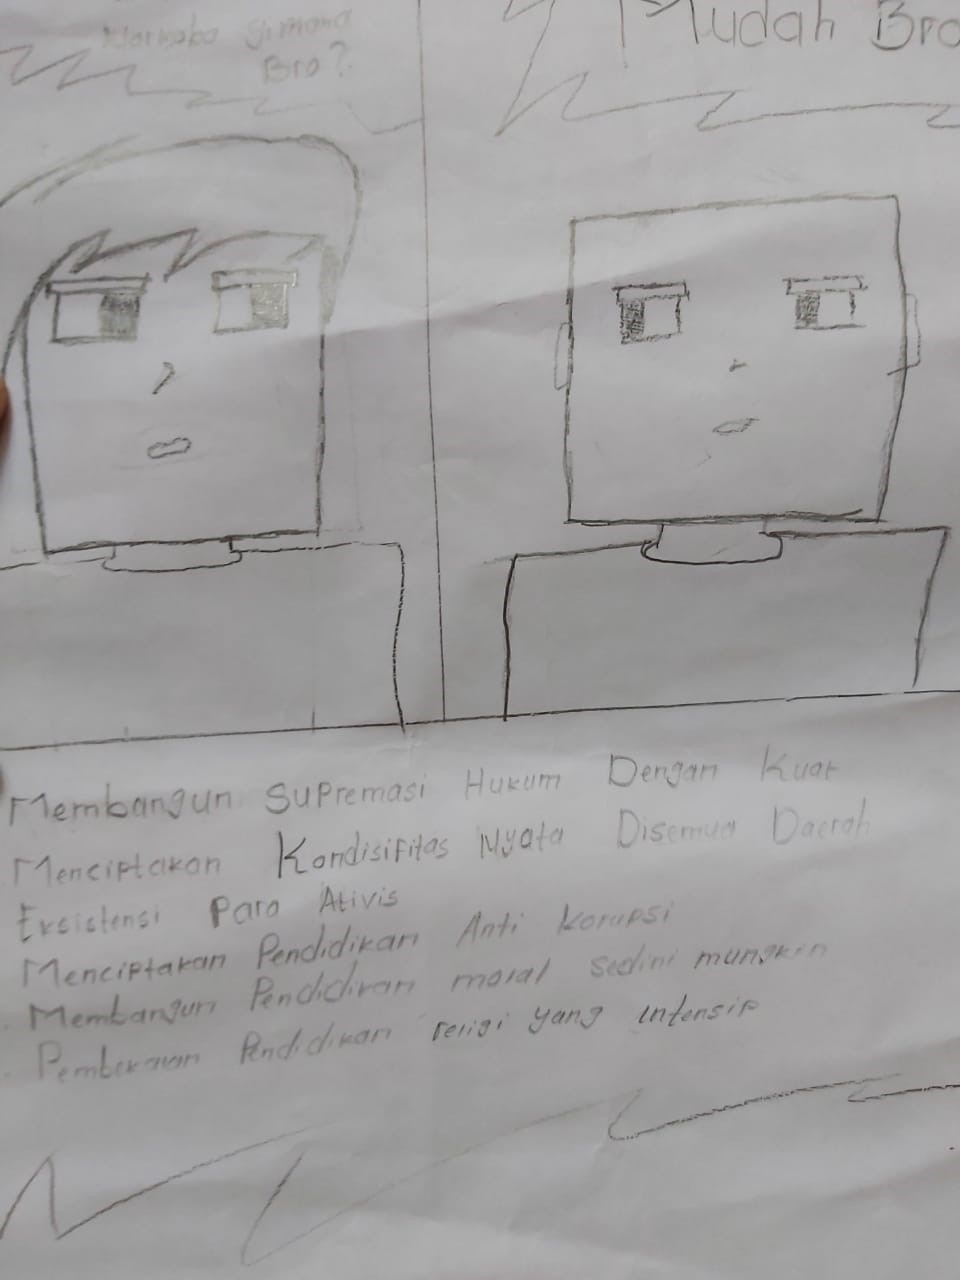 Narkoba Gimana
Bro?
Mudah Bro
Membangun Supremasi Hukum Dengan Kuat
Menciptakan Kondisifitas Nyata Disemua Daerah
Eksistensi Para Ativis
Menciptakan Pendidikan Anti Korupsi
Membangun Pendidikan moral sedini mungkin
Pembekaian Pendidikan religi yang intensif